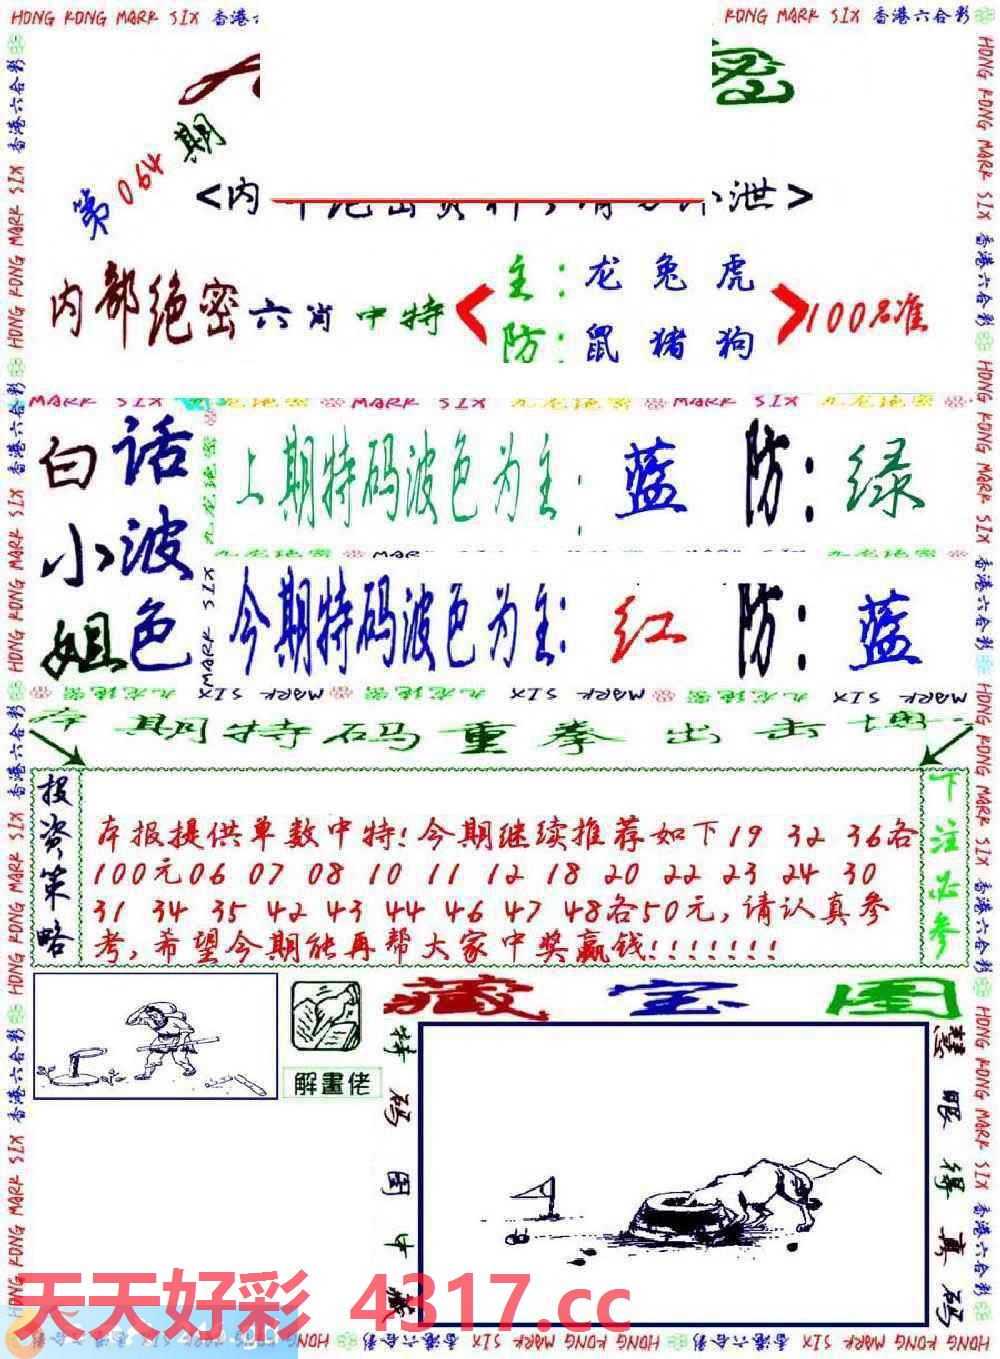 HONG KONG MARK SIX 香港六合彩
HONG KONG MARK SIX 香港六合彩
密
第064期
<内 泄>
内部绝密六肖中特
主：龙兔虎
防：鼠猪狗
100%准
MARK SIX 九龙绝密 MARK SIX 九龙绝密 MARK SIX 九龙绝密
白小姐
话波色
上期特码波色为主：蓝 防：绿
今期特码波色为主：红 防：蓝
本期特码重拳出击
投资策略
本报提供单数中特!今期继续推荐如下19 32 36各
100元06 07 08 10 11 12 18 20 22 23 24 30
31 34 35 42 43 44 46 47 48各50元,请认真参
考,希望今期能再帮大家中奖赢钱!!!!!!!
下注必参
藏宝图
解畫佬
特码图中藏
慧眼得真码
天天好彩 4317.cc